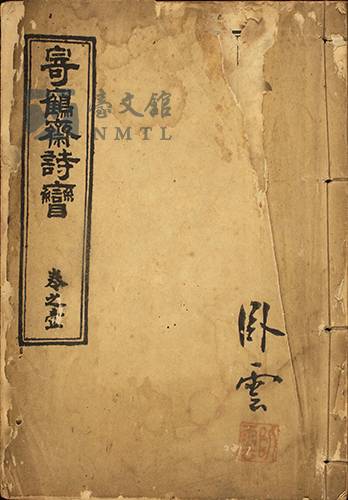 寄鶴齋詩矕
卷之壹
臥雲
臺文館
NMTL